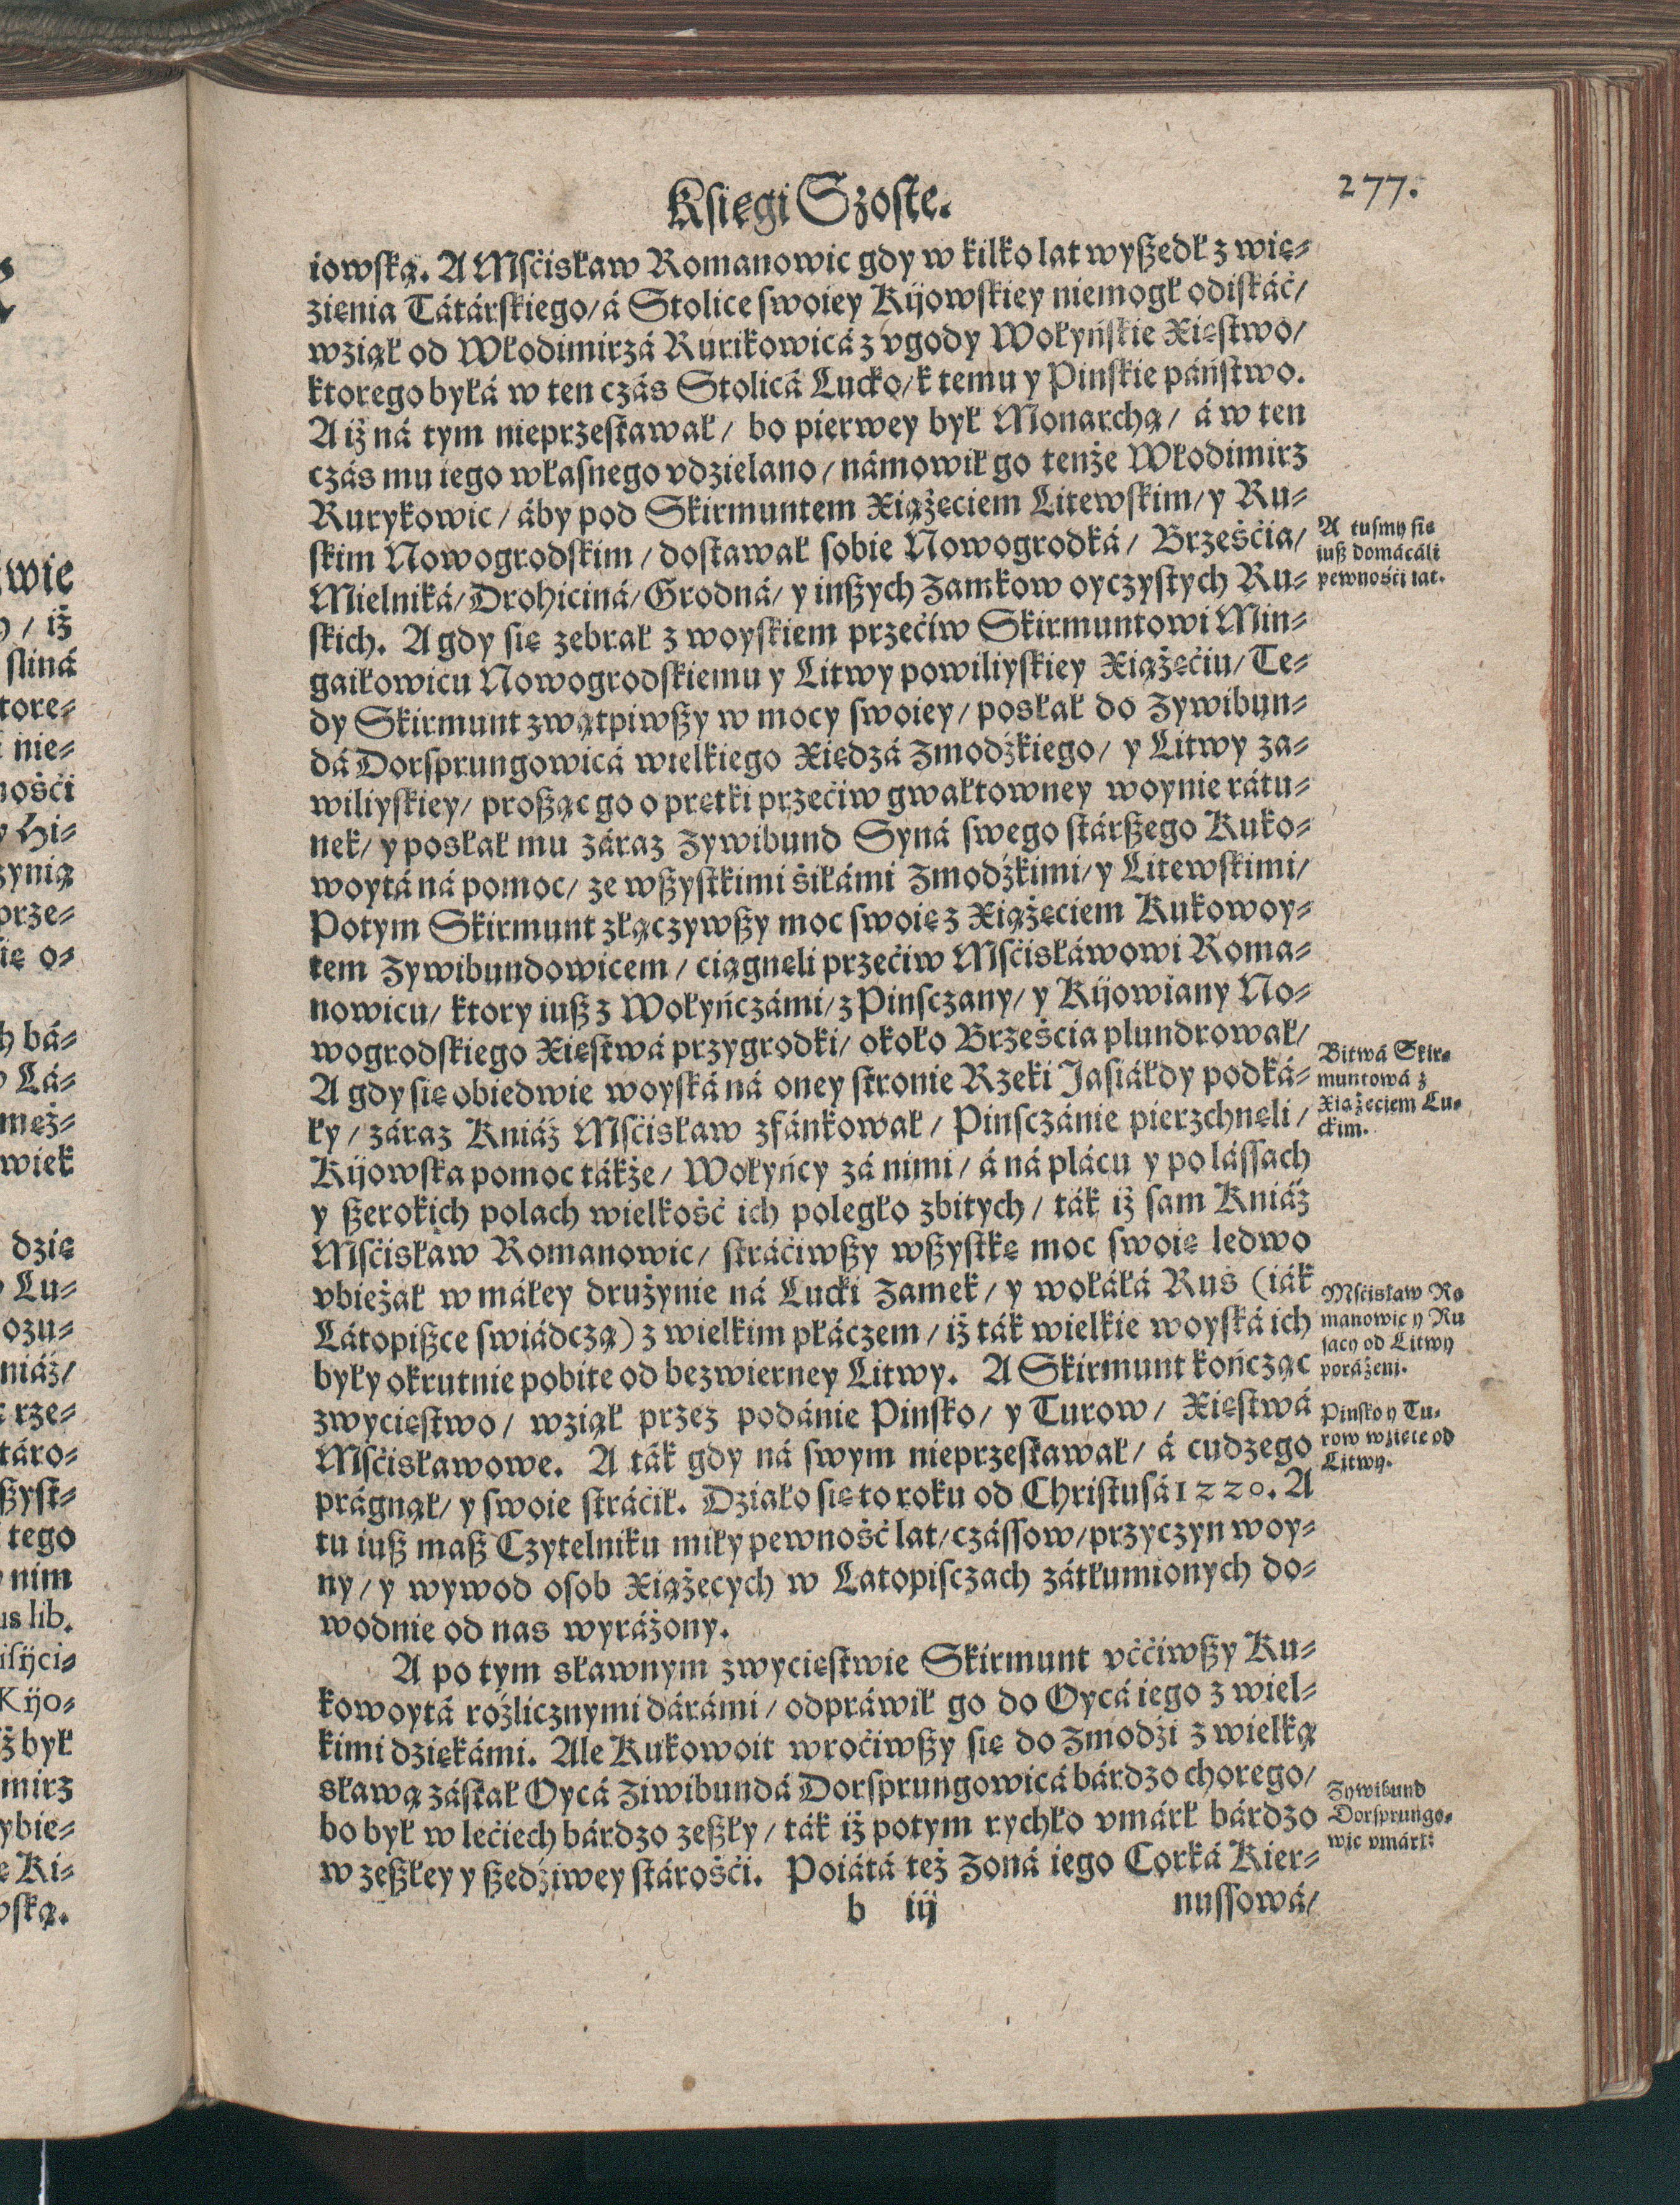 Księgi Szoste.
277.
iowską. A Mśćisław Romanowic gdy w kilko lat wyßedł z wię⸗
zienia Tátárskiego/ á Stolice swoiey Kijowskiey niemogł odiskáć/
wziął od Włodimirzá Rurikowicá z vgody Wołyńskie Xięstwo/
ktorego byłá w ten czás Stolicá Lucko/ k temu y Pinskie páństwo.
A iż ná tym nieprzestawał/ bo pierwey był Monarchą/ á w ten
czás mu iego własnego vdzielano/ námowił go tenże Włodimirz
Rurykowic/ áby pod Skirmuntem Xiążęciem Litewskim/ y Ru⸗
skim Nowogrodskim/ dostawał sobie Nowogrodká/ Brześćia/
Mielniká/ Drohiciná/ Grodná/ y inßych Zamkow oyczystych Ru⸗
skich. A gdy się zebrał z woyskiem przećiw Skirmuntowi Min⸗
gaiłowicu Nowogrodskiemu y Litwy powiliyskiey Xiążęćiu/ Te⸗
dy Skirmunt zwątpiwßy w mocy swoiey/ posłał do Zywibun⸗
dá Dorsprungowicá wielkiego Xiędzá Zmodźkiego/ y Litwy za⸗
wiliyskiey/ proßąc go o prętki przećiw gwałtowney woynie rátu⸗
nek/ y posłał mu záraz Zywibund Syná swego stárßego Kuko⸗
woytá ná pomoc/ ze wßystkimi śiłámi Zmodźkimi/ y Litewskimi/
Potym Skirmunt złączywßy moc swoię z Xiążęciem Kukowoy⸗
tem Zywibundowicem/ ciągnęli przećiw Mśćisłáwowi Roma⸗
nowicu/ ktory iuß z Wołyńczámi/ z Pinsczany/ y Kijowiany No⸗
wogrodskiego Xięstwá przygrodki/ około Brześcia plundrował/
A gdy się obiedwie woyská ná oney stronie Rzeki Jasiáłdy podká⸗
ły/ záraz Kniáź Mśćisław zfánkował/ Pinsczánie pierzchnęli/
Kijowska pomoc tákże/ Wołyńcy zá nimi/ á ná plácu y po lássach
y ßerokich polach wielkość ich poległo zbitych/ ták iż sam Kniáź
Mśćisław Romanowic/ stráćiwßy wßystkę moc swoię ledwo
vbieżał w máłey drużynie ná Lucki Zamek/ y wołáłá Ruś (iák
Látopißce swiádczą) z wielkim płáczem/ iż ták wielkie woyská ich
były okrutnie pobite od bezwierney Litwy. A Skirmunt kończąc
zwycięstwo/ wziął przez podánie Pinsko/ y Turow/ Xięstwá
Mśćisławowe. A ták gdy ná swym nieprzestawał/ á cudzego
prágnął/ y swoie stráćił. Działo się to roku od Christusá 1220. A
tu iuß maß Czytelniku miły pewność lat/ czássow/ przyczyn woy⸗
ny/ y wywod osob Xiążęcych w Latopisczach zátłumionych do⸗
wodnie od nas wyráżony.
A po tym sławnym zwycięstwie Skirmunt vććiwßy Ku⸗
kowoytá rożlicznymi dárámi/ odpráwił go do Oycá iego z wiel⸗
kimi dziękámi. Ale Kukowoit wroćiwßy się do Zmodźi z wielką
sławą zástał Oycá Ziwibundá Dorsprungowicá bárdzo chorego/
bo był w lećiech bárdzo zeßły/ ták iż potym rychło vmárł bárdzo
w zeßłey y ßedźiwey stárośći. Poiátá też Zoná iego Corká Kier⸗
b iij
nussowá/
A tusmy się
iuß domácáli
pewnośći lat.
Bitwá Skir⸗
muntowá z
Xiążęciem Lu⸗
ckim.
Mśćisław Ro
manowic y Ru
sacy od Litwy
poráżeni.
Pinsko y Tu⸗
row wzięte od
Litwy.
Zywibund
Dorsprungo⸗
wic vmárł:
wie
/ iż
sliná
tore⸗
nie⸗
nośći
y Hi⸗
zynią
prze⸗
ię o⸗
h bá⸗
Lá⸗
męż⸗
wiek
dzię
Lu⸗
ozu⸗
niáź/
rze⸗
táro⸗
ßyst⸗
tego
nim
us lib.
isijci⸗
Kijo⸗
ż był
mirz
ybie⸗
Ki⸗
wską.